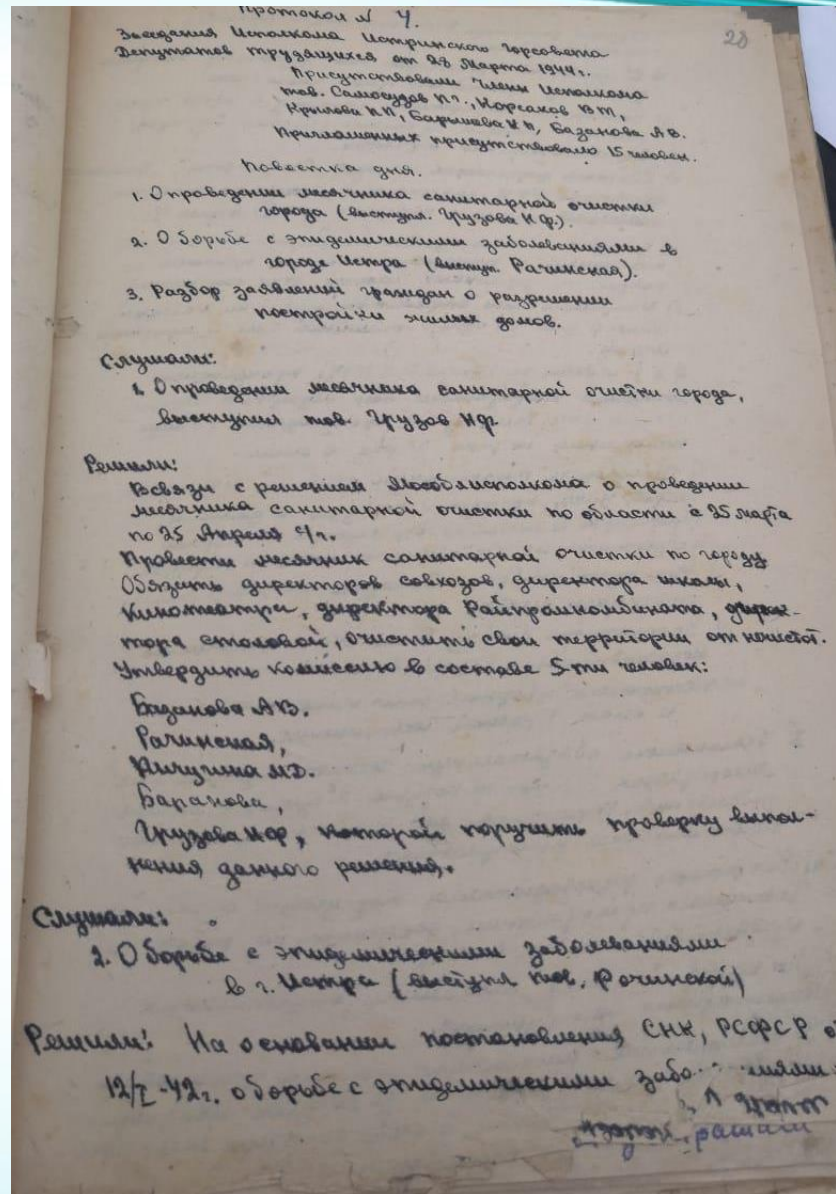 Протокол № 4.
28
Заседания Исполкома Истринского горсовета
Депутатов трудящихся от 28 Марта 1944г.
Присутствовали члены Исполкома
тов. Самосудов П.Г., Корсаков В.М,
Крылова, Барышева, Базанова А.В.
Приглашенных присутствовало 15 человек.
Повестка дня.
1. О проведении месячника санитарной очистки
города (выступл. Грузова Н.Ф.).
2. О борьбе с эпидемическими заболеваниями в
городе Истра (выступ. Рачинская).
3. Разбор заявлений граждан о разрешении
постройки жилых домов.
Слушали:
1. О проведении месячника санитарной очистки города,
выступил тов. Грузов Н.Ф.
Решили:
Всвязи с решением Мособлисполкома о проведении
месячника санитарной очистки по области с 25 марта
по 25 Апреля с/г.
Провести месячник санитарной очистки по городу
Обязать директоров совхозов, директора школы,
кинотеатра, директора Райпромкомбината, дирек-
тора столовой, очистить свои территории от нечистот.
Утвердить комиссию в составе 5-ти человек:
Базанова А.В.
Рачинская,
Пичугина М.Д.
Баранова,
Грузова Н.Ф, которой поручить проверку выпол-
нения данного решения.
Слушали:
2. О борьбе с эпидемическими заболеваниями
в г. Истра (выступл тов. Рачинской)
Решили: На основании постановления СНК, РСФСР о
12/I-42г. о борьбе с эпидемическими